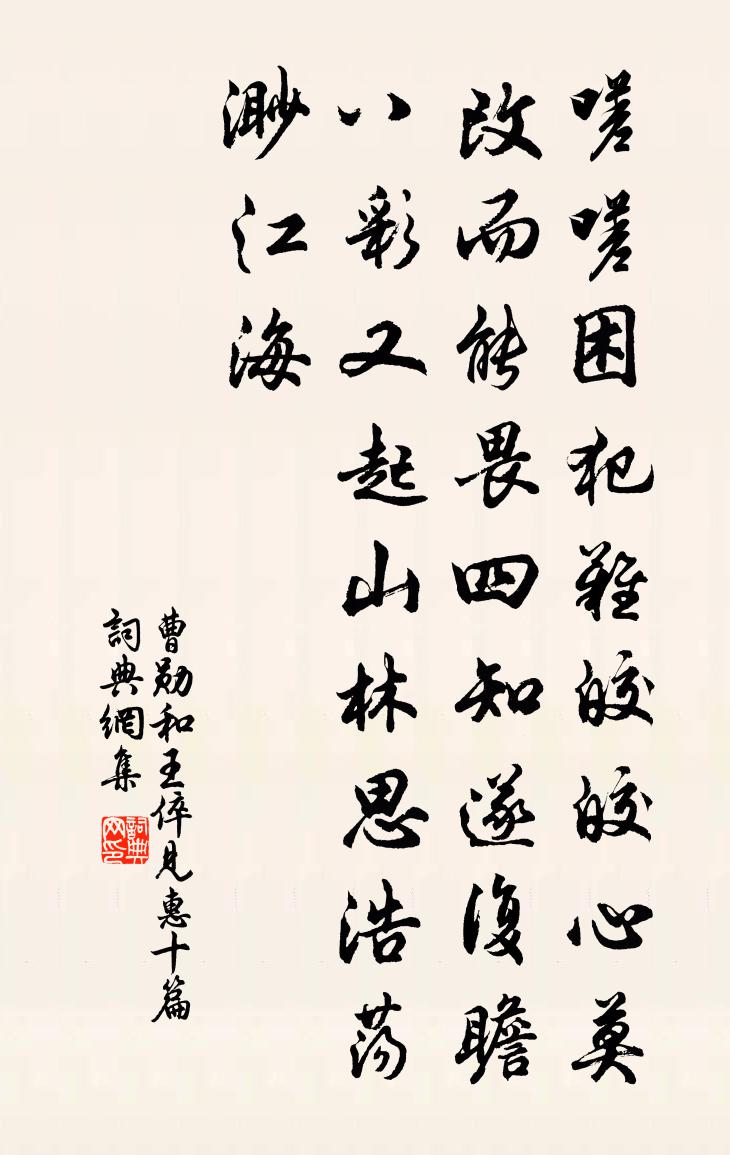 嗟嗟困犯難皎皎心莫
改而能畏四知遂復瞻
八彩又起山林思浩蕩
渺江海
曹勛和王倅見惠十篇
詞典網集
詞典网印